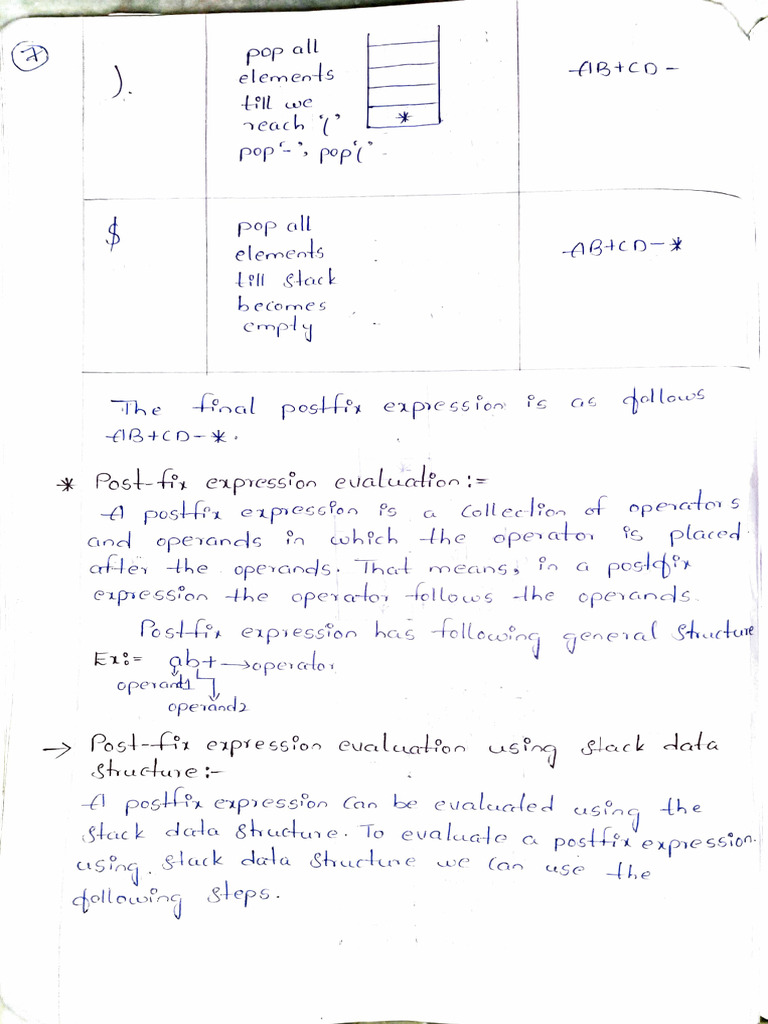 7
).
pop all
elements
till we
reach '('
pop '-', pop '('
*
AB+CD-
$
pop all
elements
till stack
becomes
empty
AB+CD-*
The final postfix expression is as follows
AB+CD-*.
* Post-fix expression evaluation:=
A postfix expression is a collection of operators
and operands in which the operator is placed
after the operands. That means, in a postfix
expression the operator follows the operands.
Postfix expression has following general structure
Ex:= ab+ → operator
operand1
operand2
→ Post-fix expression evaluation using stack data
structure:-
A postfix expression can be evaluated using the
stack data structure. To evaluate a postfix expression
using stack data structure we can use the
following steps.